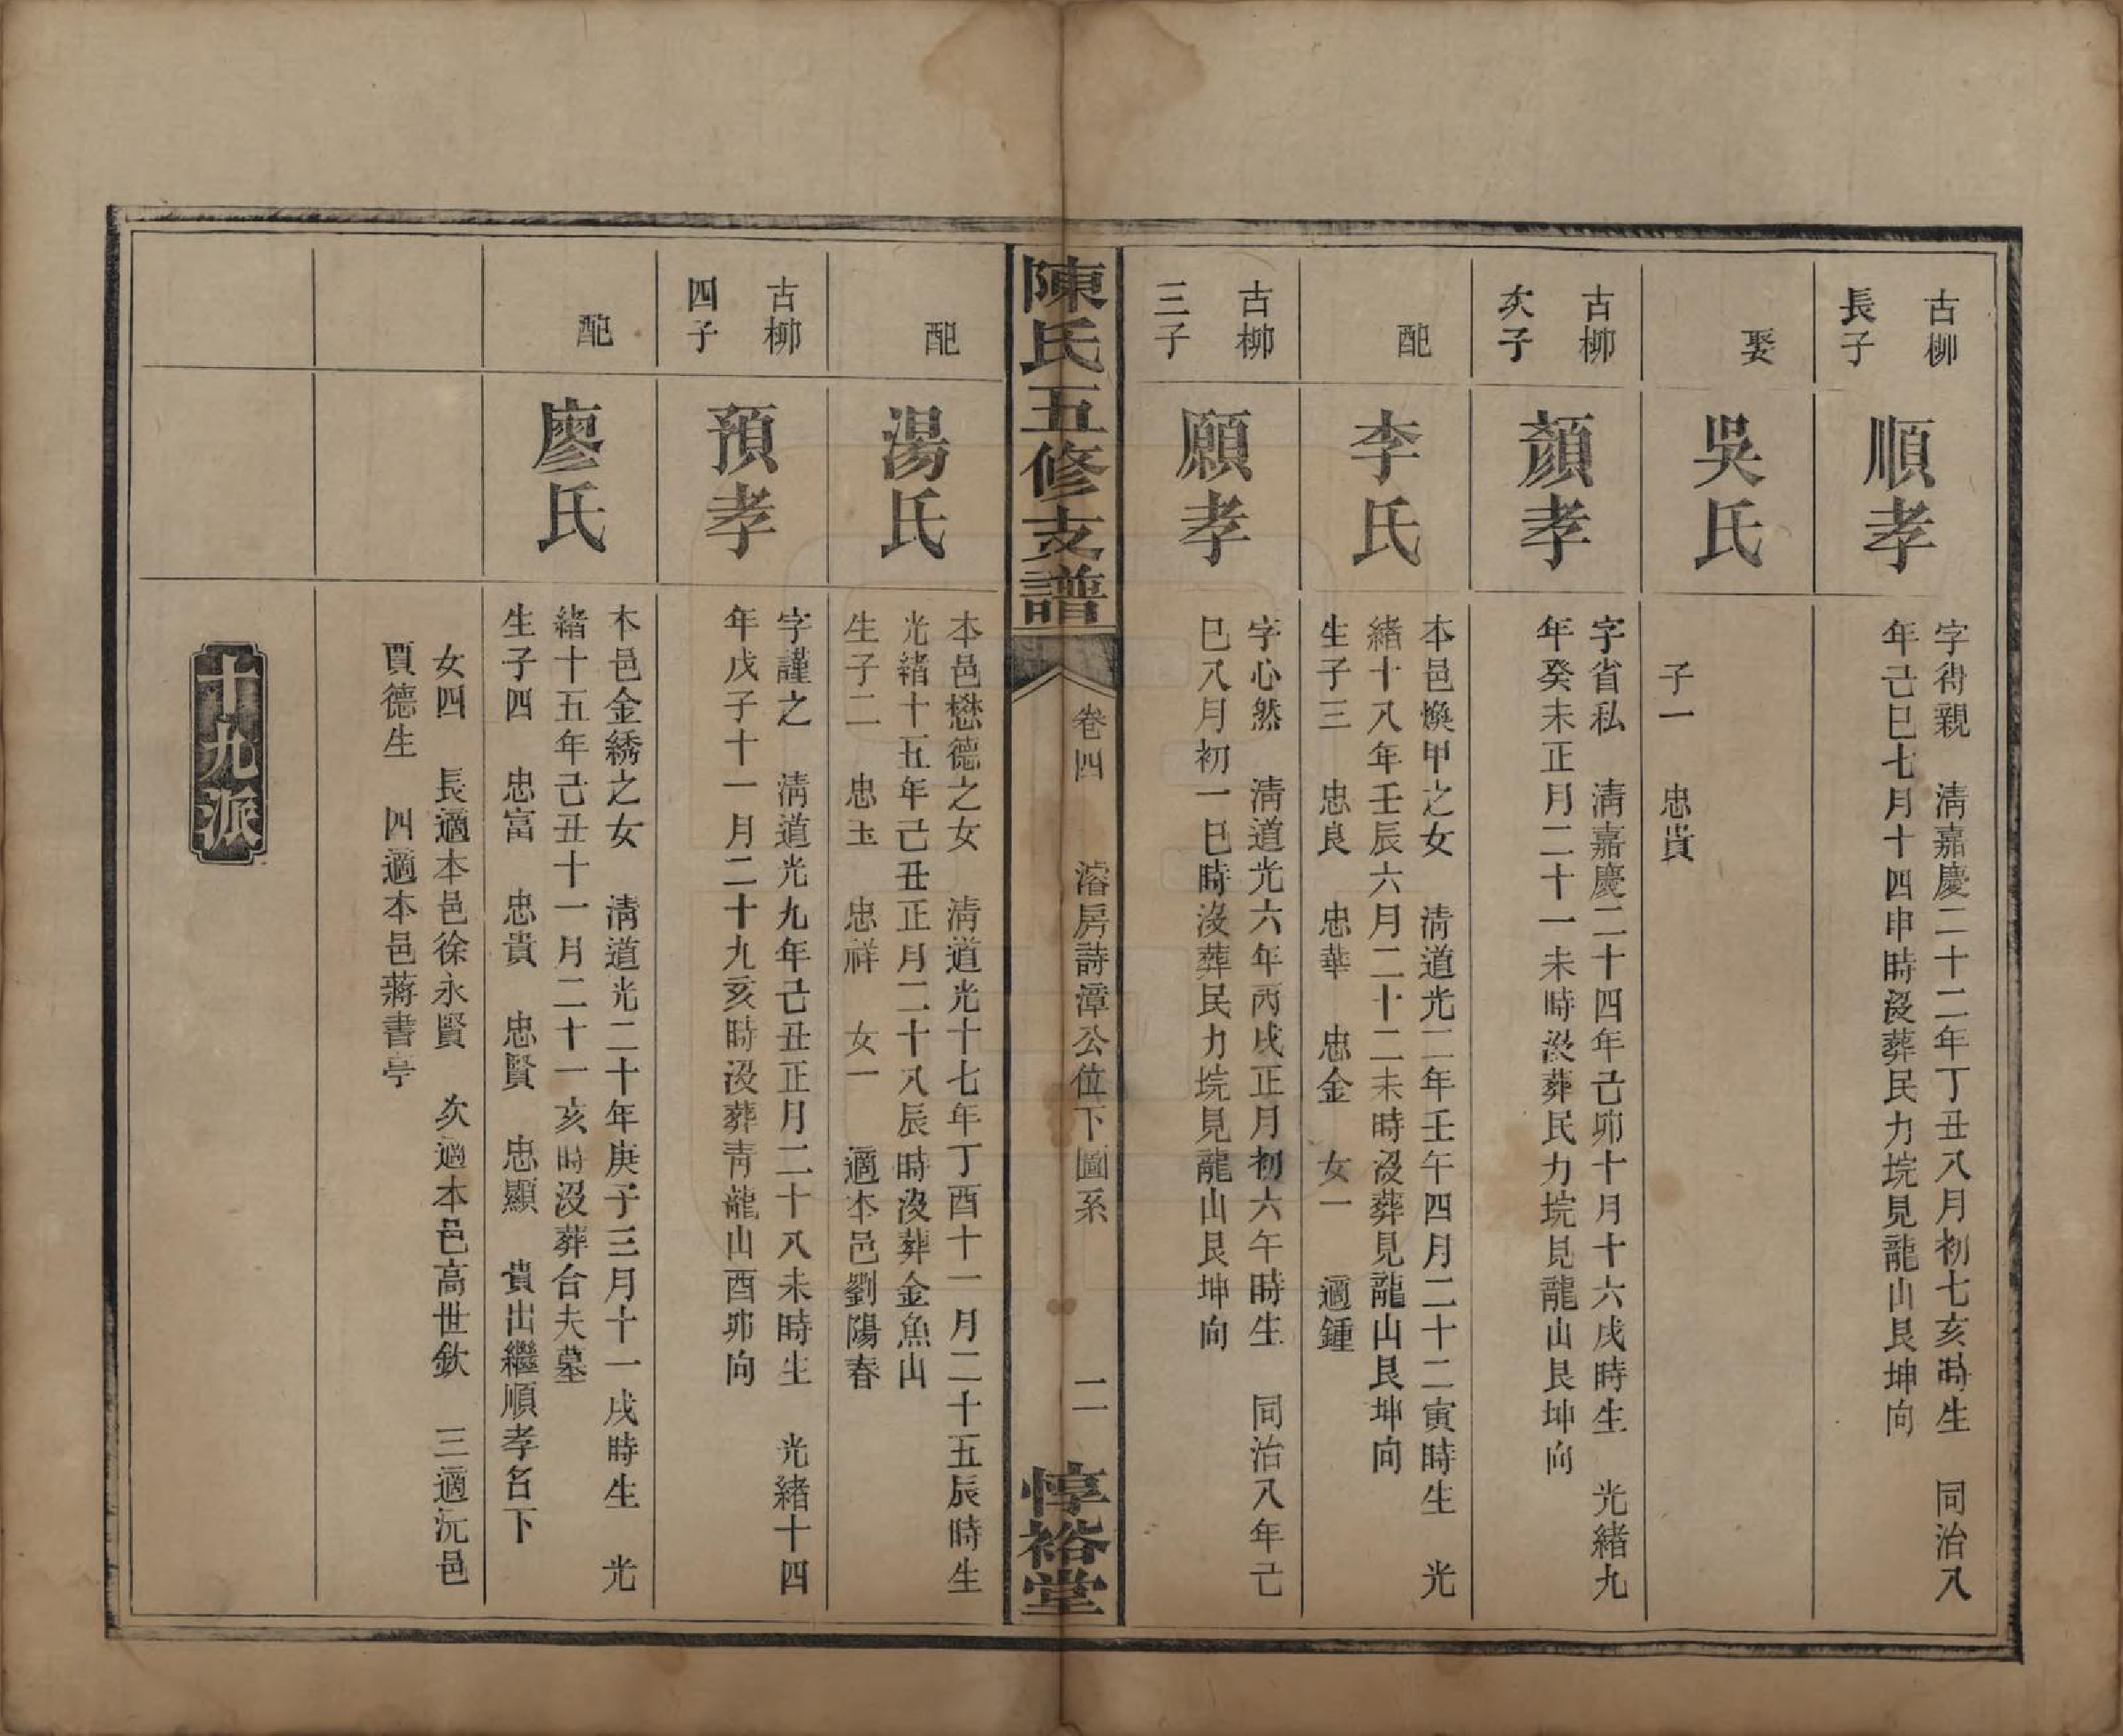 古柳
長子
順孝
字得親 淸嘉慶二十二年丁丑八月初七亥時生 同治八
年己巳七月十四申時沒葬民力垸見龍山艮坤向
娶
吳氏
子一 忠貴
古柳
次子
顏孝
字省私 淸嘉慶二十四年己卯十月十六戌時生 光緒九
年癸未正月二十一未時沒葬民力垸見龍山艮坤向
配
李氏
本邑煥甲之女 淸道光二年壬午四月二十二寅時生 光
緒十八年壬辰六月二十二未時沒葬見龍山艮坤向
生子三 忠良 忠華 忠金 女一 適鍾
古柳
三子
願孝
字心然 淸道光六年丙戌正月初六午時生 同治八年己
巳八月初一巳時沒葬民力垸見龍山艮坤向
陳氏五修支譜
卷四 濬房詩漳公位下圖系 二
惇裕堂
配
湯氏
本邑懋德之女 淸道光十七年丁酉十一月二十五辰時生
光緒十五年己丑正月二十八辰時沒葬金魚山
生子二 忠玉 忠祥 女一 適本邑劉陽春
古柳
四子
預孝
字謹之 淸道光九年己丑正月二十八未時生 光緒十四
年戊子十一月二十九亥時沒葬青龍山酉卯向
配
廖氏
本邑金綉之女 淸道光二十年庚子三月十一戌時生 光
緒十五年己丑十一月二十一亥時沒葬合夫墓
生子四 忠富 忠貴 忠賢 忠顯 貴出繼順孝名下
女四 長適本邑徐永賢 次適本邑高世欽 三適沅邑
賈德生 四適本邑蔣書亭
十九派